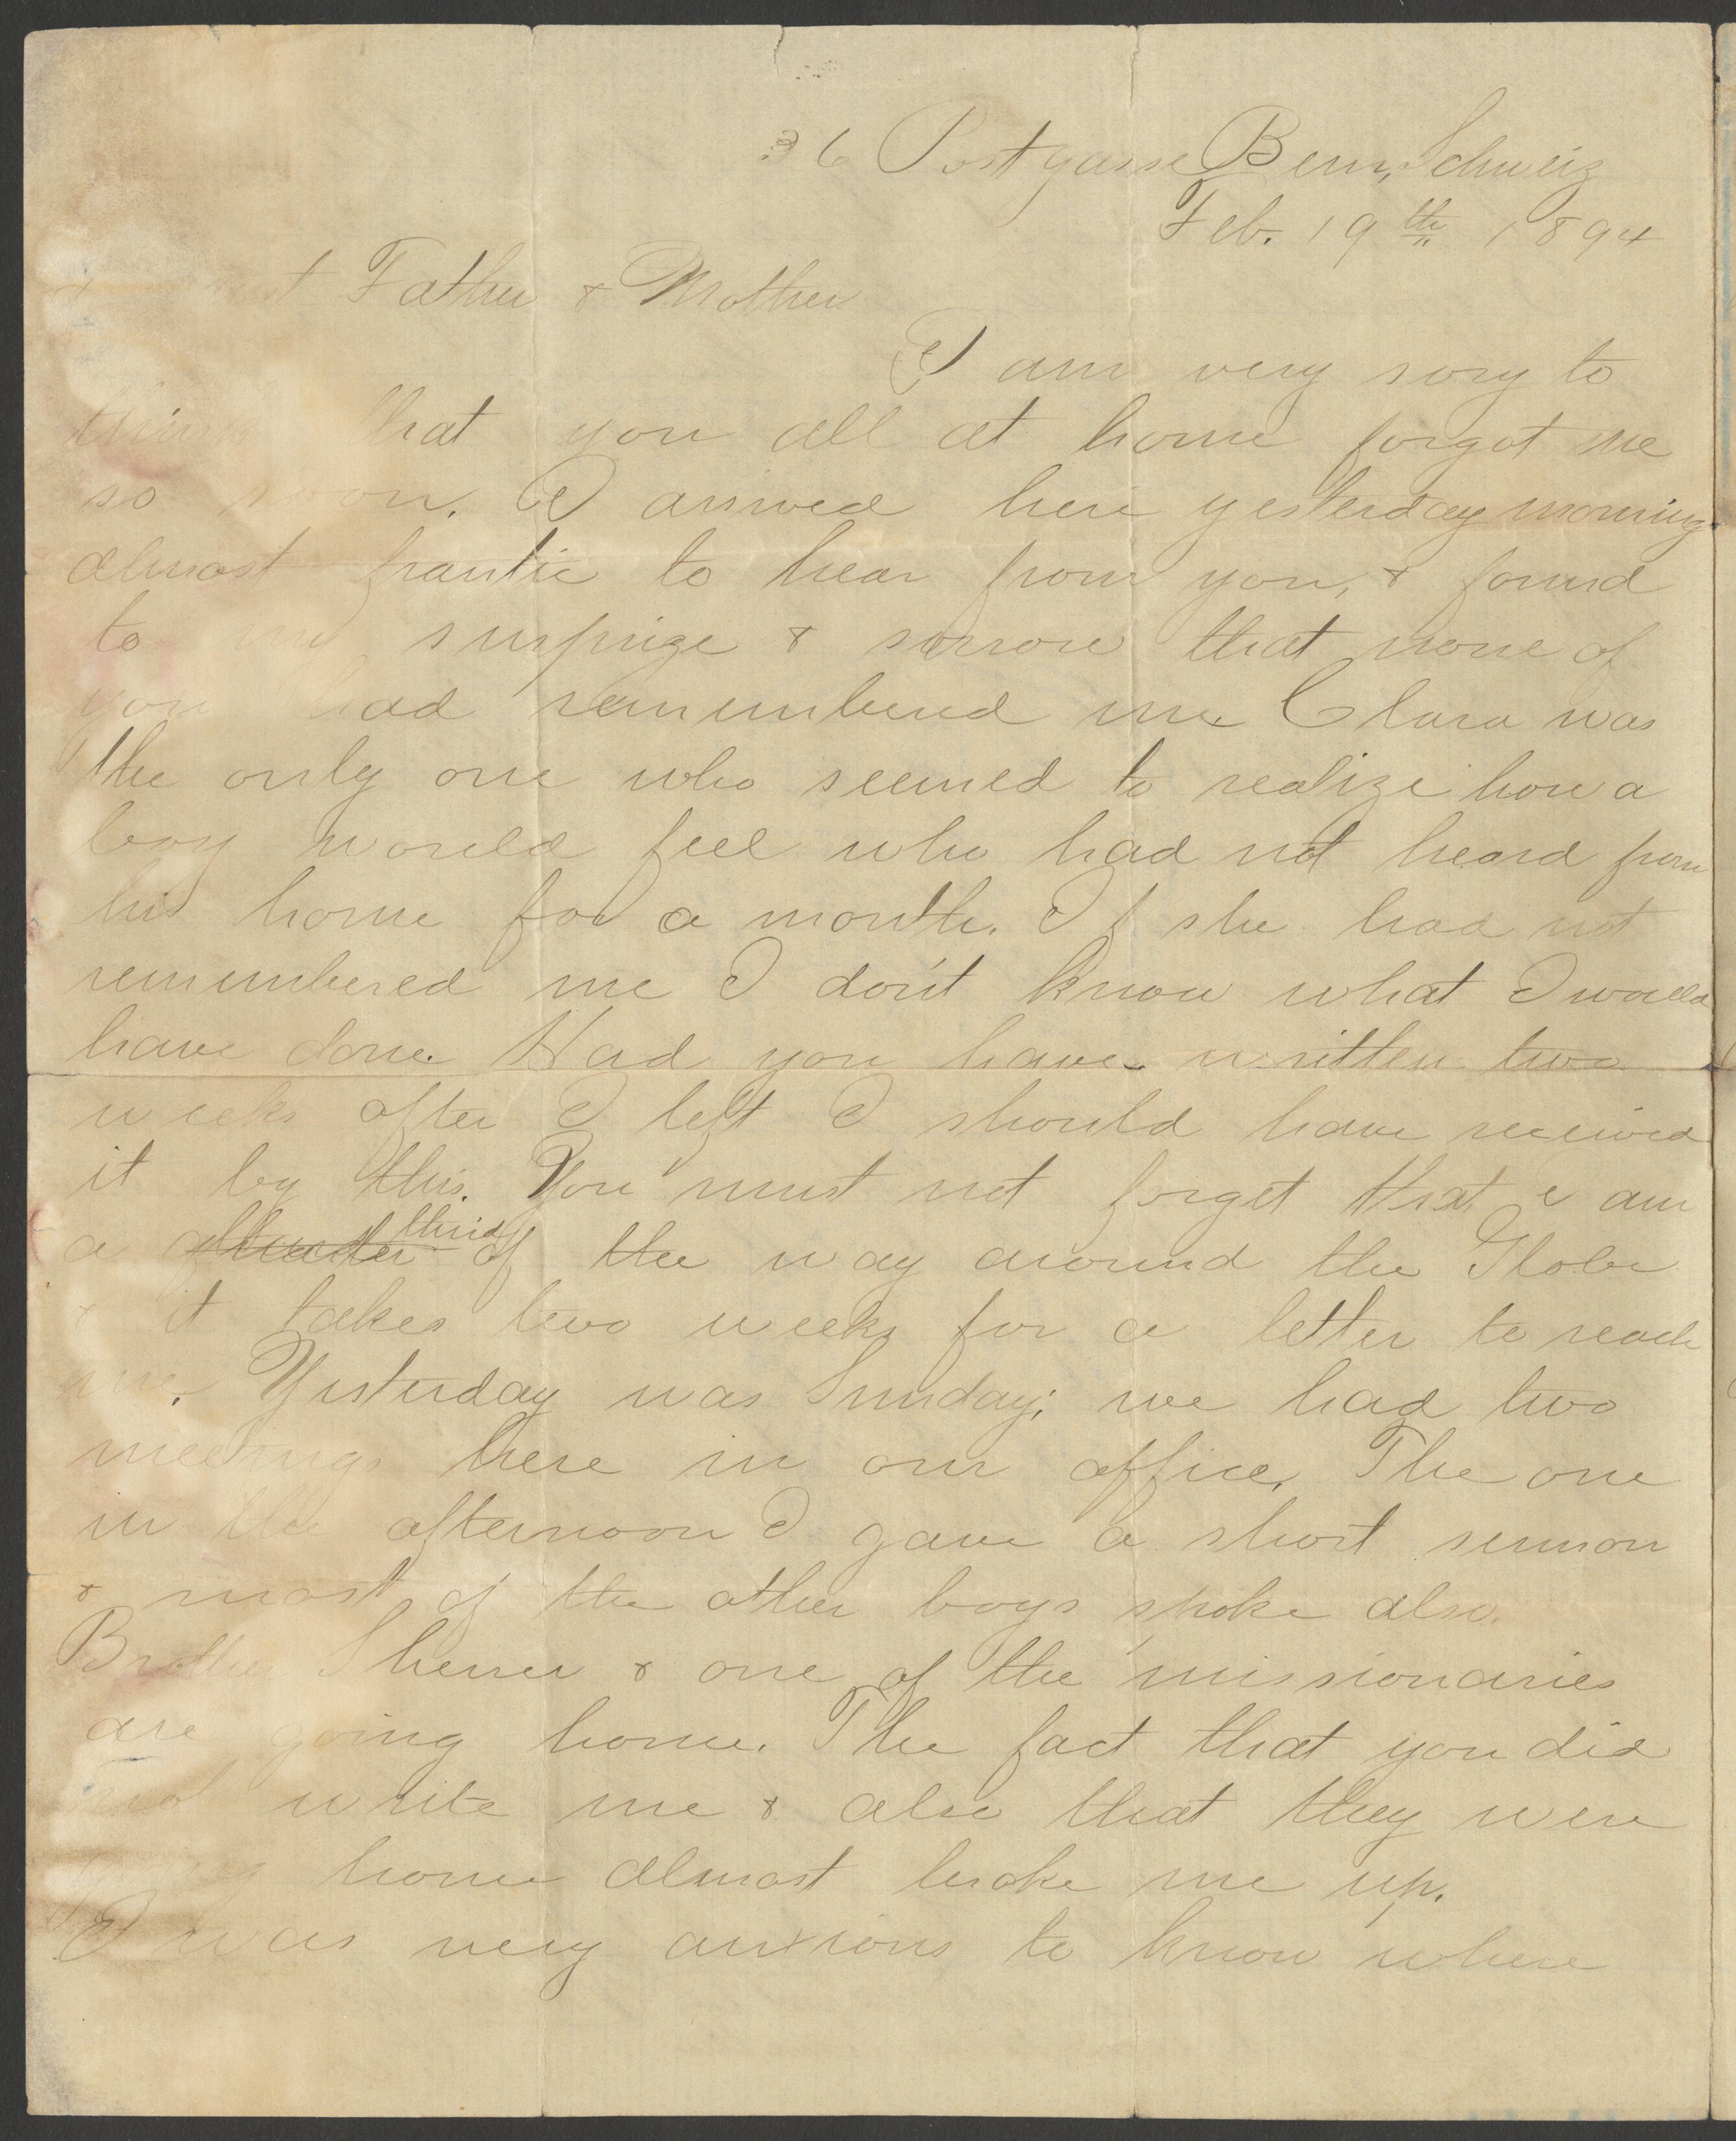 36 Postgasse Bern, Schweiz
Feb. 19th 1894
Father & Mother
I am very sory to
think that you all at home forgot me
so soon. I arrived here yesterday morning
almost frantic to hear from you, & found
to my surprize & sorrow that none of
you had remembered me Clara was
the only one who seemed to realize how a
boy would feel who had not heard from
his home for a month. If she had not
remembered me I don't know what I would
have done Had you have written two
weeks after I left I should have received
it by this. You must not forget that I am
a third of the way around the Globe
& it takes two weeks for a letter to reach
me. Yesterday was Sunday; we had two
meetings here in our office. The one
in the afternoon I gave a short sermon
& most of the other boys spoke also.
Brother & one of the missionaries
are going home. The fact that you did
not write me & also that they were
going home almost broke me up.
I was very anxious to know where